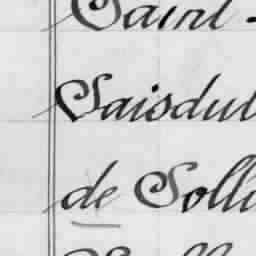 Saint-
Saisdul
de Solli